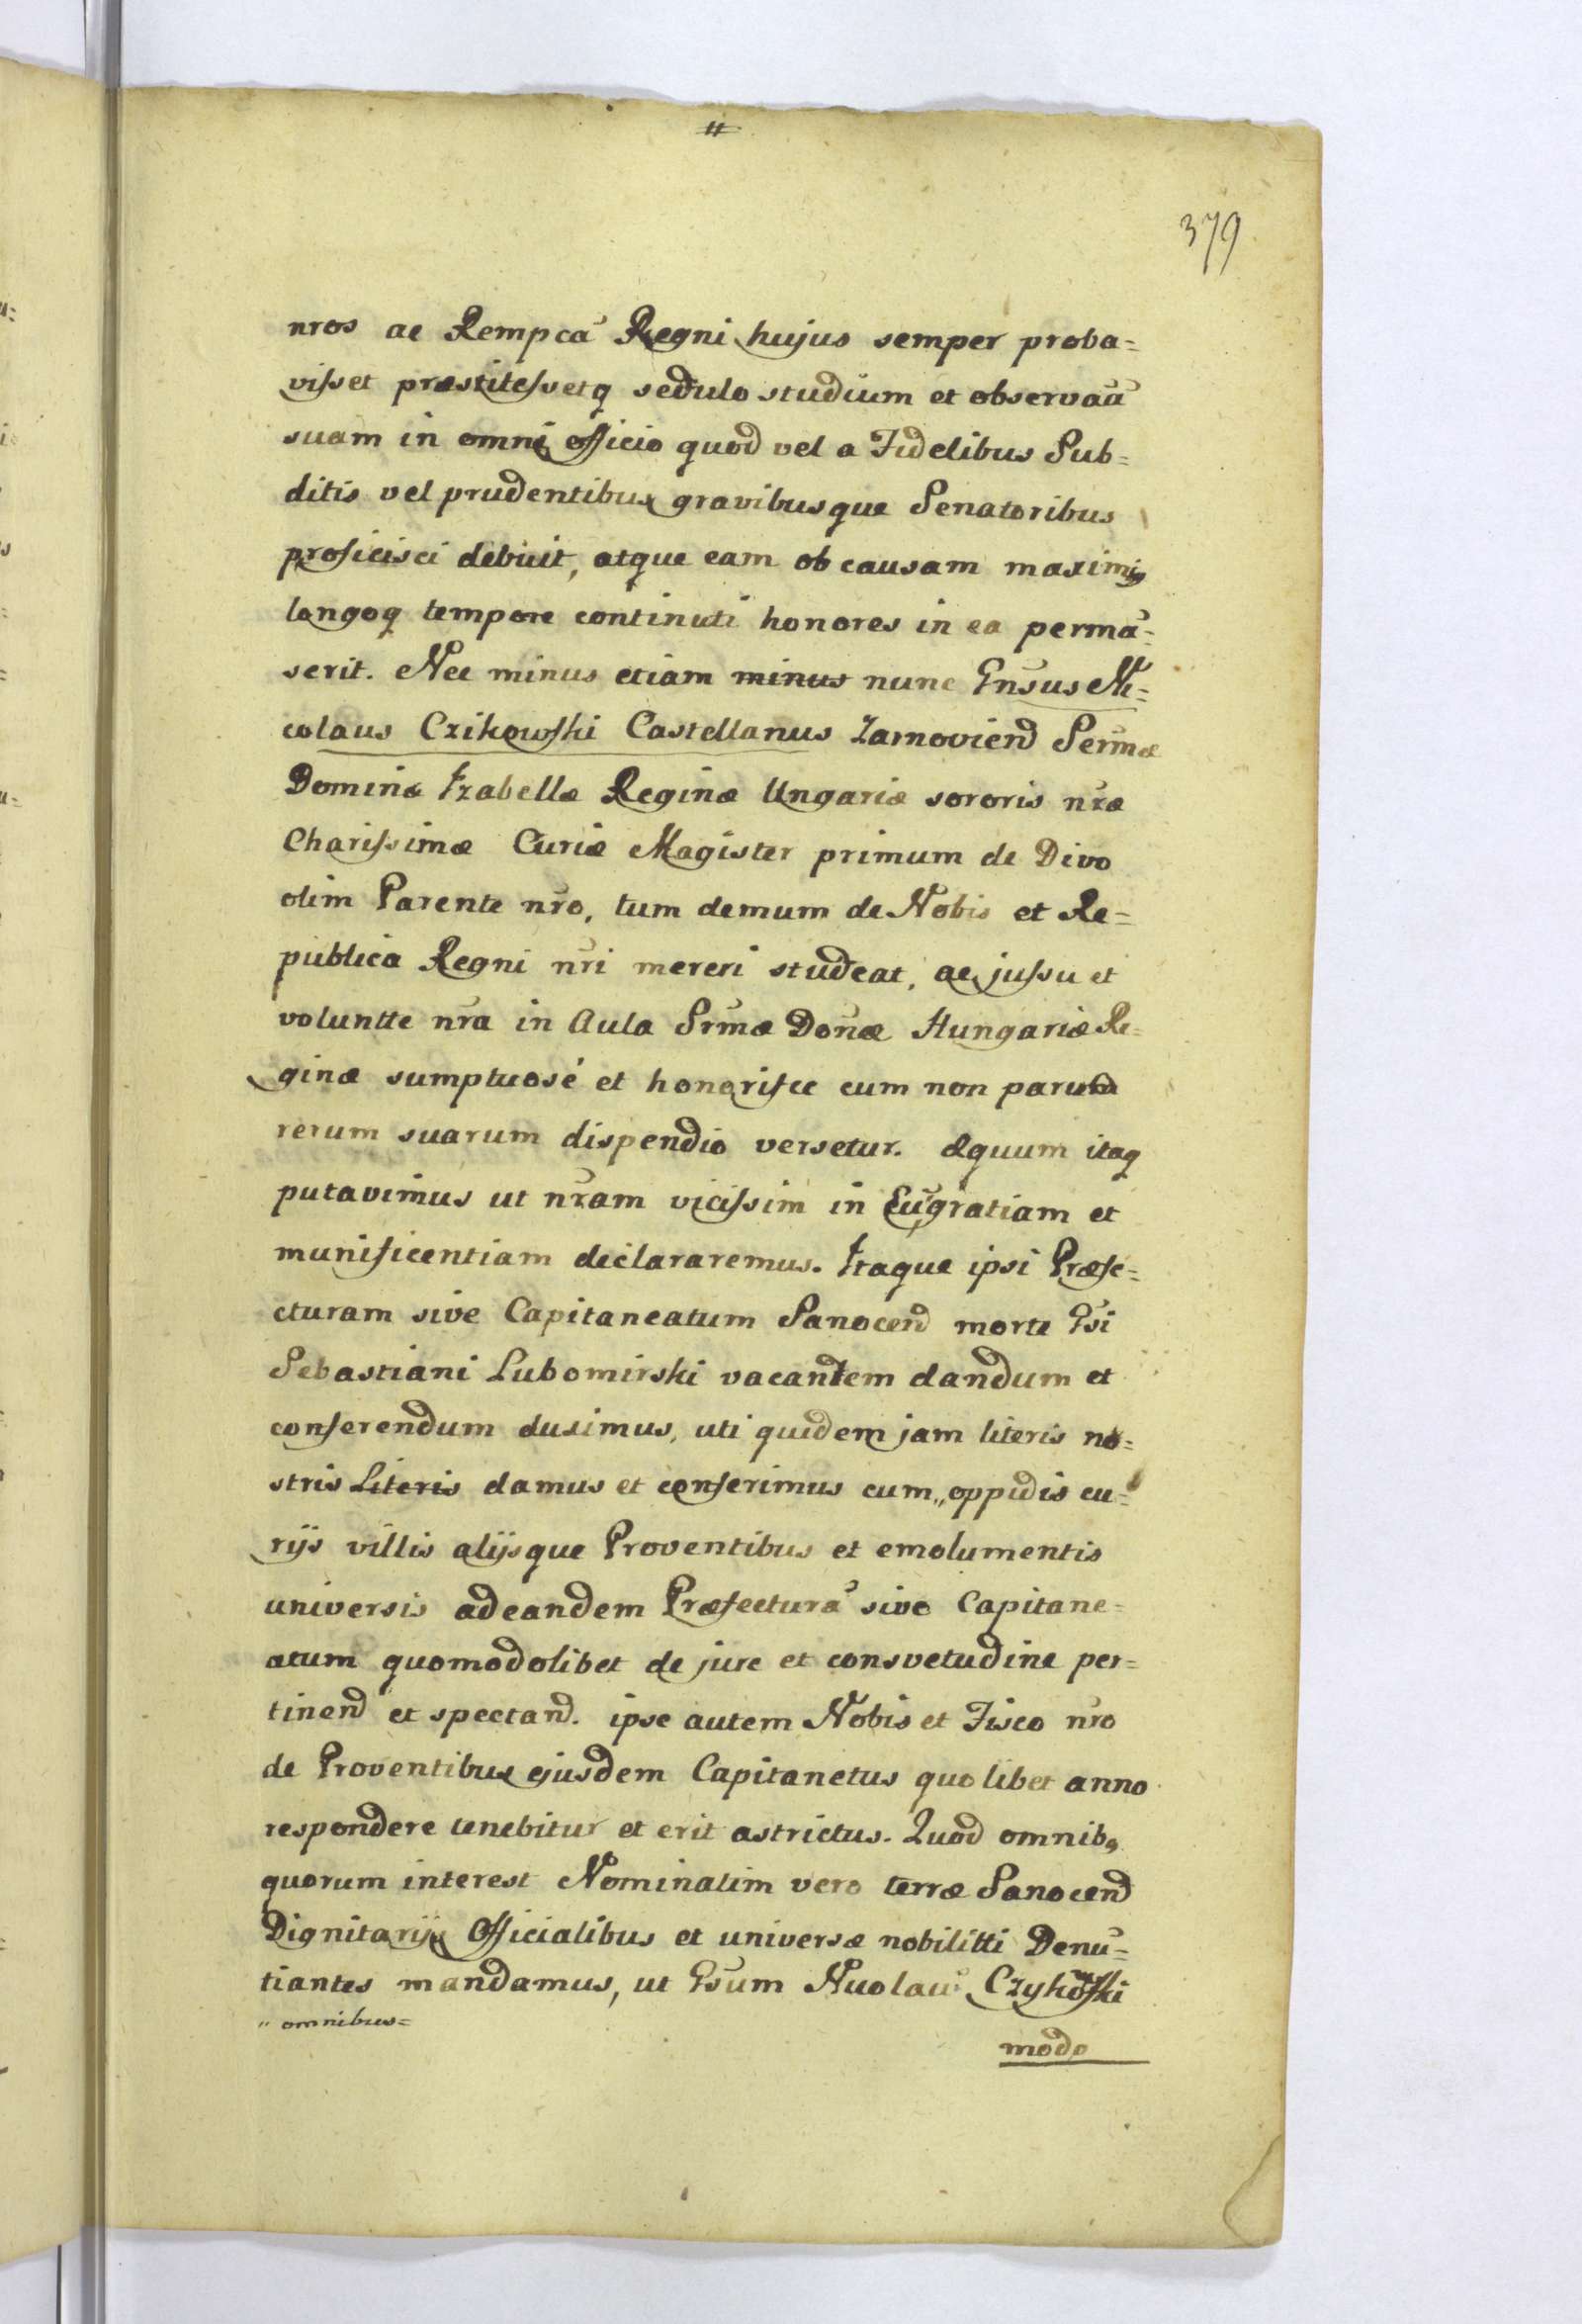 "
379
nros ac Rempcã Regni hujus semper proba=
visset præstitessetq sedulo studium et observaã
suam in omni officio quod vel a Fidelibus Sub=
ditis vel prudentibus gravibusque Senatoribus
proficisci debuit, atque eam ob causam maximis
longoq tempore continuti honores in ea permã=
serit. Nec minus etiam minus nunc Gnsus Ni=
colaus Czikowski Castellanus Zarnoviend Sermæ
Dominæ Izabellæ Reginæ Ungariæ sororis nræ
Charissimæ Curiæ Magister primum de Divo
olim Parente nro, tum demum de Nobis et Re=
publica Regni nri mereri studeat, ac jussu et
voluntte nra in Aula Srmæ Donæ Hungariæ Re=
ginæ sumptuosé et honorifce cum non parum
rerum suarum dispendio versetur. Æquum itaq
putavimus ut nram vicissim in Eũ gratiam et
munificentiam declararemus. Itaque ipsi Præfe=
cturam sive Capitaneatum Sanocend morte Gsi
Sebastiani Lubomirski vacantem dandum et
conferendum duximus, uti quidem jam literis no=
stris Literis damus et conferimus cum „ oppidis cu=
rijs villis alijsque Proventibus et emolumentis
universis adeandem Præfecturã sive Capitane=
atum quomodolibet de jure et consvetudine per=
tinend et spectand. ipse autem Nobis et Fisco nro
de Proventibus ejusdem Capitanetus quolibet anno
respondere tenebitur et erit astrictus. Quod omnibq
quorum interest Nominatim vero terræ Sanocend
Dignitarijs Officialibus et universæ nobilitti Denũ=
tiantes mandamus, ut Gsum Nicolaũ Czykowski
„ omnibus=
modo